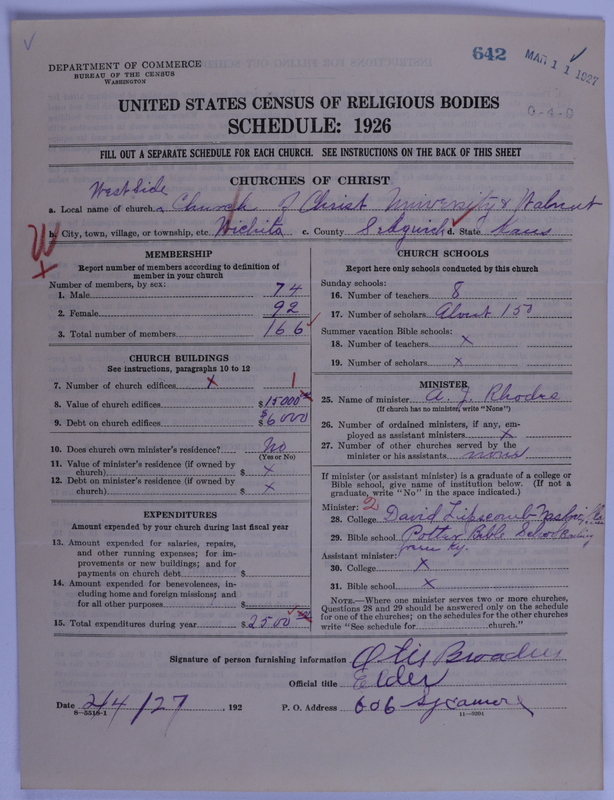 642
MAR 11 1927
0-4-0
DEPARTMENT OF COMMERCE
BUREAU OF THE CENSUS
WASHINGTON
UNITED STATES CENSUS OF RELIGIOUS BODIES
SCHEDULE: 1926
FILL OUT A SEPARATE SCHEDULE FOR EACH CHURCH. SEE INSTRUCTIONS ON THE BACK OF THIS SHEET
CHURCHES OF CHRIST
West Side
a. Local name of church Church of Christ University & Walnut
b. City, town, village, or township, etc. Wichita c. County Sedgwick d. State Kans
W
x
MEMBERSHIP
Report number of members according to definition of
member in your church
Number of members, by sex:
1. Male 74
2. Female 92
3. Total number of members 166
CHURCH BUILDINGS
See instructions, paragraphs 10 to 12
7. Number of church edifices x 1
8. Value of church edifices $15000
9. Debt on church edifices $6000
10. Does church own minister's residence? No
(Yes or No)
11. Value of minister's residence (if owned by
church) $ x
12. Debt on minister's residence (if owned by
church) $ x
EXPENDITURES
Amount expended by your church during last fiscal year
13. Amount expended for salaries, repairs,
and other running expenses; for im-
provements or new buildings; and for
payments on church debt $
14. Amount expended for benevolences, in-
cluding home and foreign missions; and
for all other purposes $
15. Total expenditures during year $2500
CHURCH SCHOOLS
Report here only schools conducted by this church
Sunday schools:
16. Number of teachers 8
17. Number of scholars About 150
Summer vacation Bible schools:
18. Number of teachers x
19. Number of scholars x
MINISTER
25. Name of minister A. J. Rhodes
(If church has no minister, write "None")
26. Number of ordained ministers, if any, em-
ployed as assistant ministers x
27. Number of other churches served by the
minister or his assistants none
If minister (or assistant minister) is a graduate of a college or
Bible school, give name of institution below. (If not a
graduate, write "No" in the space indicated.)
Minister: 2
28. College David Lipscomb-Nashville
29. Bible school Potter Bible School Bowling
Green Ky.
Assistant minister:
30. College x
31. Bible school x
NOTE.—Where one minister serves two or more churches,
Questions 28 and 29 should be answered only on the schedule
for one of the churches; on the schedules for the other churches
write "See schedule for church."
Signature of person furnishing information Otis Broadus
Official title Elder
Date 2/4/27, 192 P. O. Address 606 Sycamore
8-5518-1 11-9204